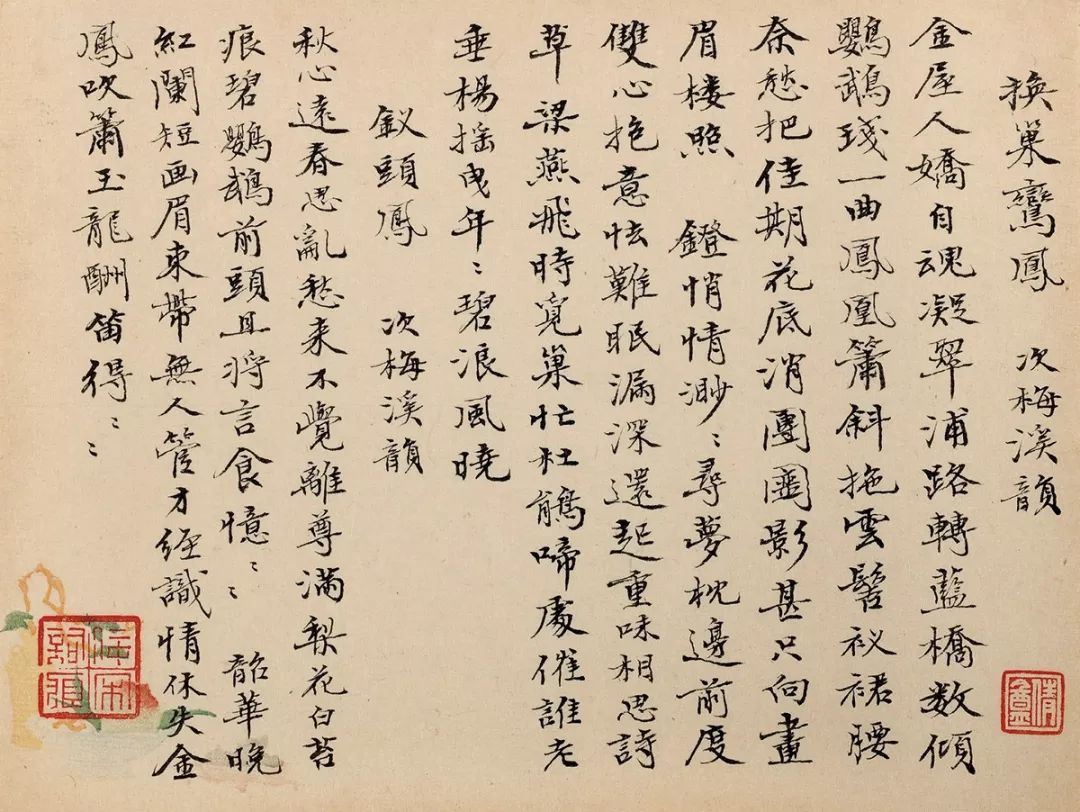 換巢鸞鳳 次梅溪韻
金屋人嬌自魂凝翠浦路轉藍橋数傾
鸚鵡琖一曲鳳凰簫斜拖雲髻衩裙腰
奈愁把佳期花底消團圞影甚只向畫
眉楼照 鐙悄情渺〻尋夢枕邊前度
雙心抱意怯難眠漏深還起重味相思詩
草梁燕飛時覓巢忙杜鵑啼處催誰老
垂楊搖曳年〻碧浪風曉
釵頭鳳 次梅溪韻
秋心遠春思亂愁来不覺離尊满梨花白苔
痕碧鸚鵡前頭且将言食憶〻〻韶華晚
紅闌短画眉束帶無人管才經識情休失金
鳳吹簫玉龍酬笛得〻〻
倩盦